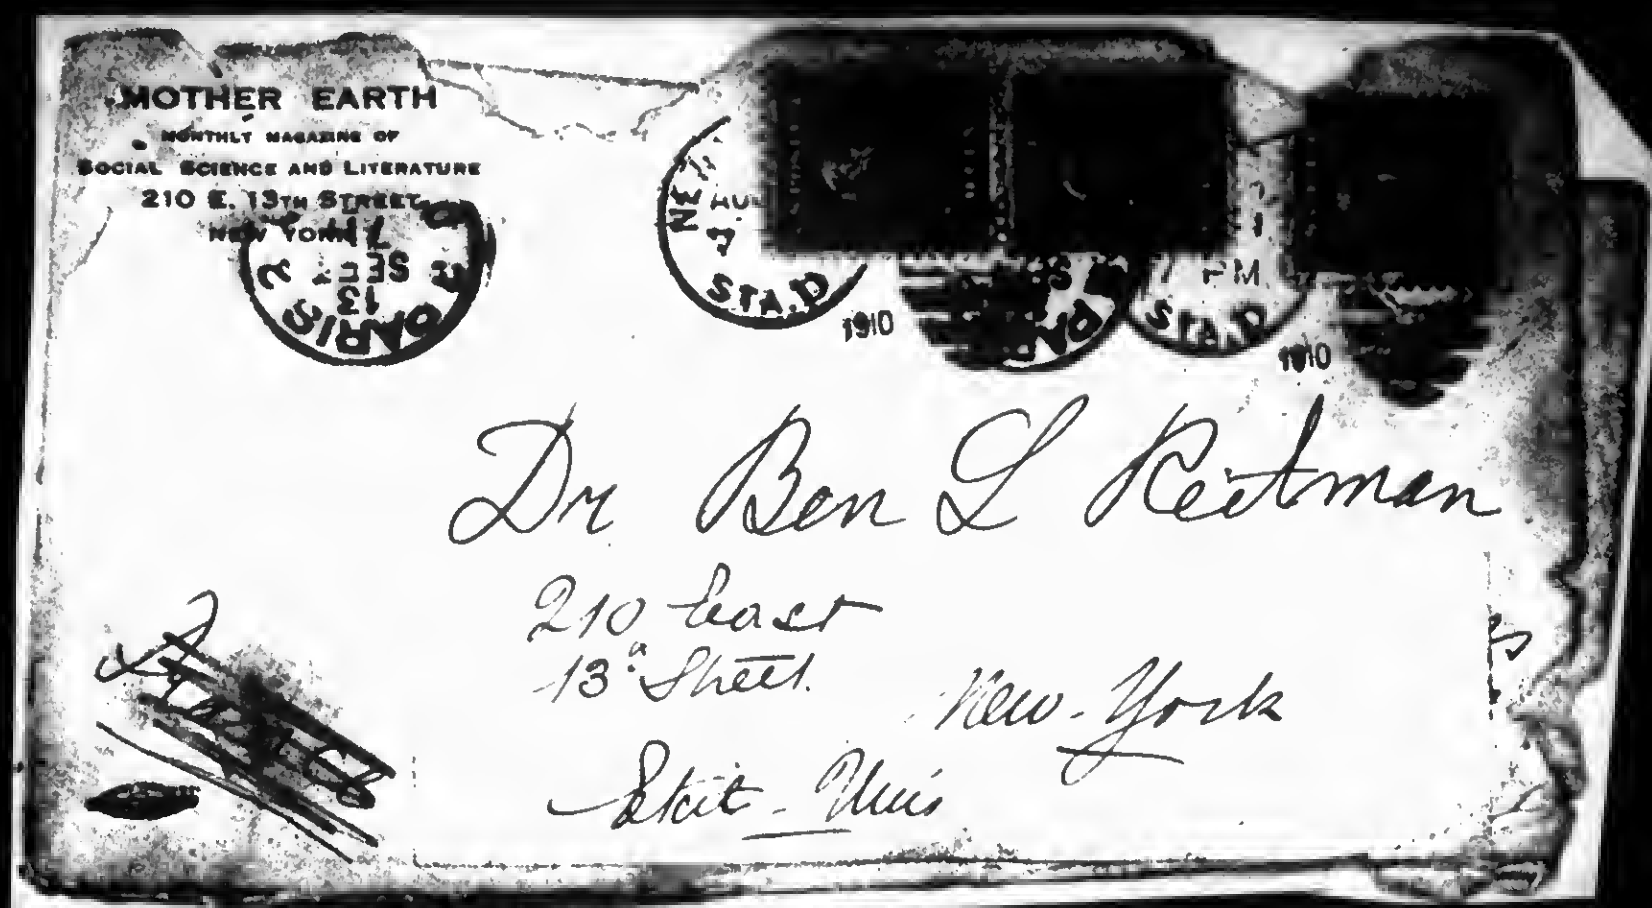 MOTHER EARTH
MONTHLY MAGAZINE OF
SOCIAL SCIENCE AND LITERATURE
210 E. 13TH STREET
NEW YORK
PARIS
13
SEPT
STA.D
1910
PM
STA.D
1910
Dr Ben L Reitman
210 East
13a Street
New-York
Etat-Unis